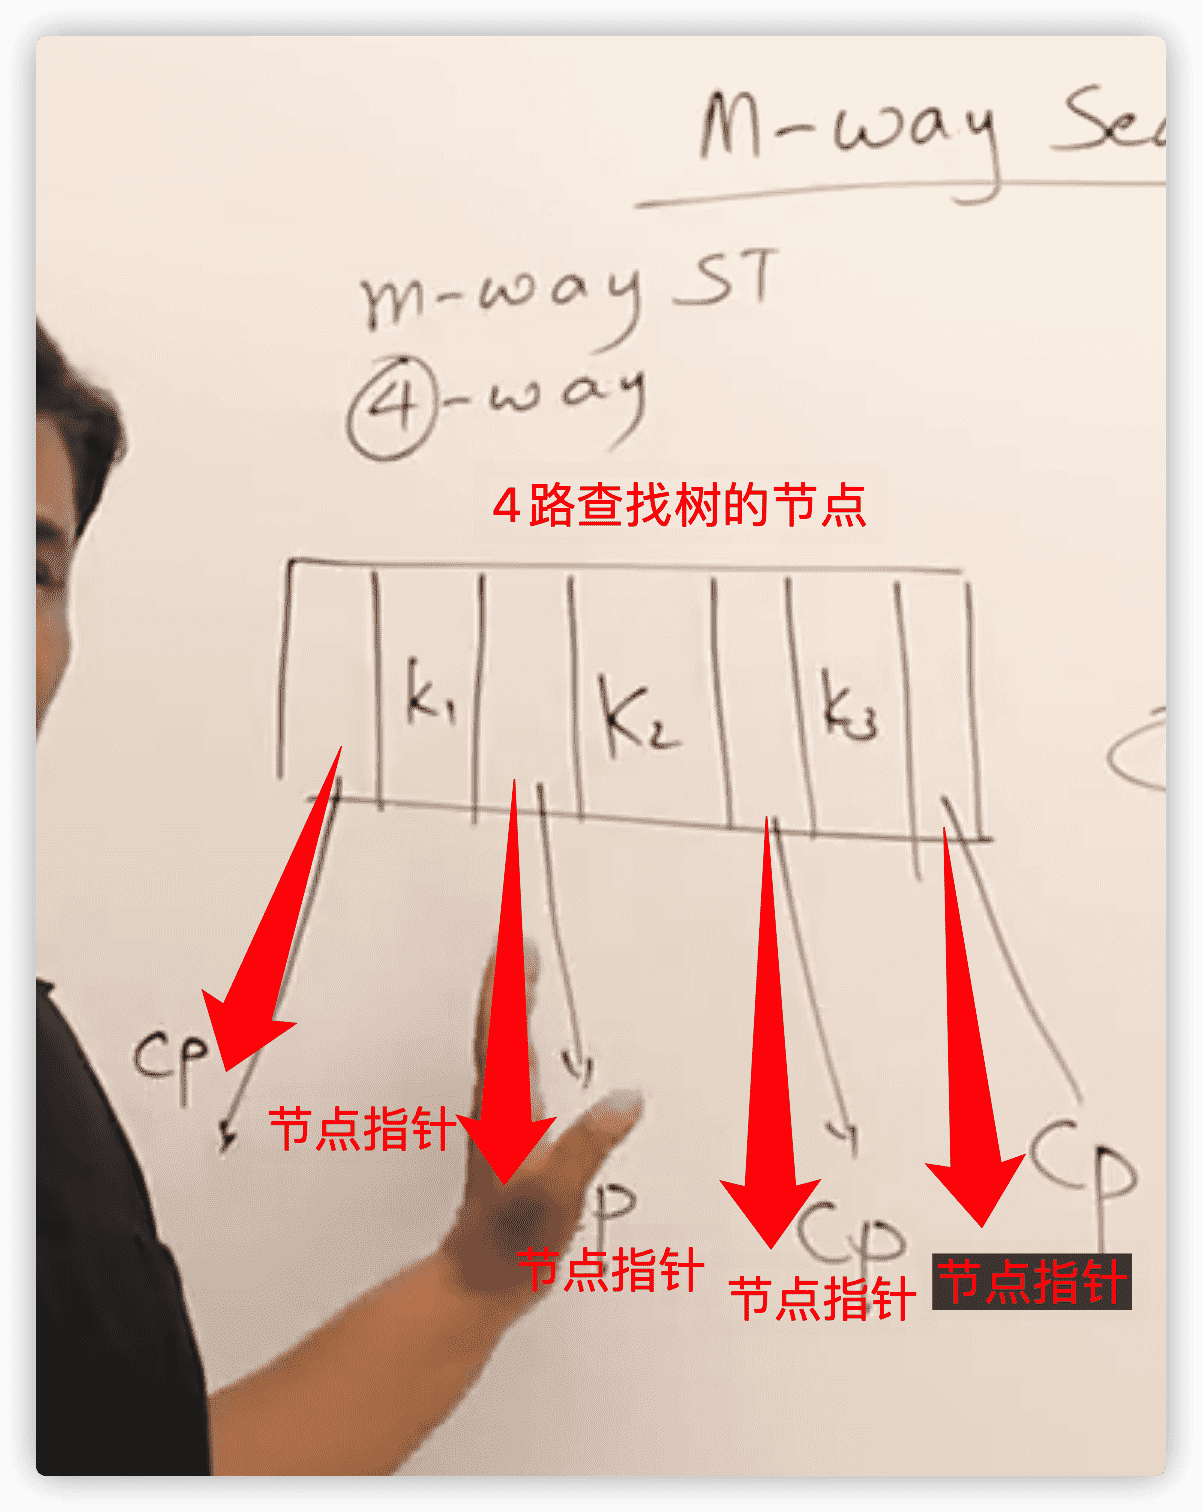 M-way Sea
m-way ST
4-way
4路查找树的节点
k1 K2 k3
Cp
节点指针
Cp
p
Cp
节点指针
节点指针
节点指针